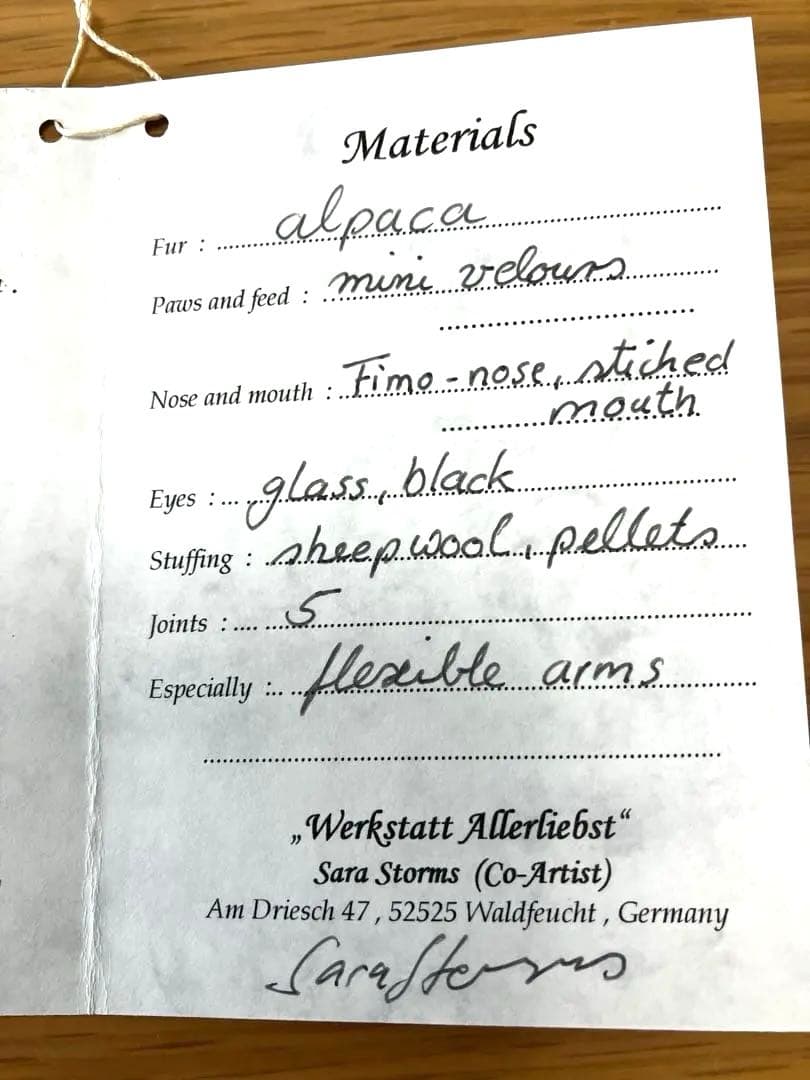 Materials
Fur : alpaca
Paws and feed : mini velours
Nose and mouth : Fimo-nose, stiched
mouth
Eyes : glass, black
Stuffing : sheepwool, pellets
Joints : 5
Especially : flexible arms
„Werkstatt Allerliebst“
Sara Storms (Co-Artist)
Am Driesch 47 , 52525 Waldfeucht , Germany
Sara Storms